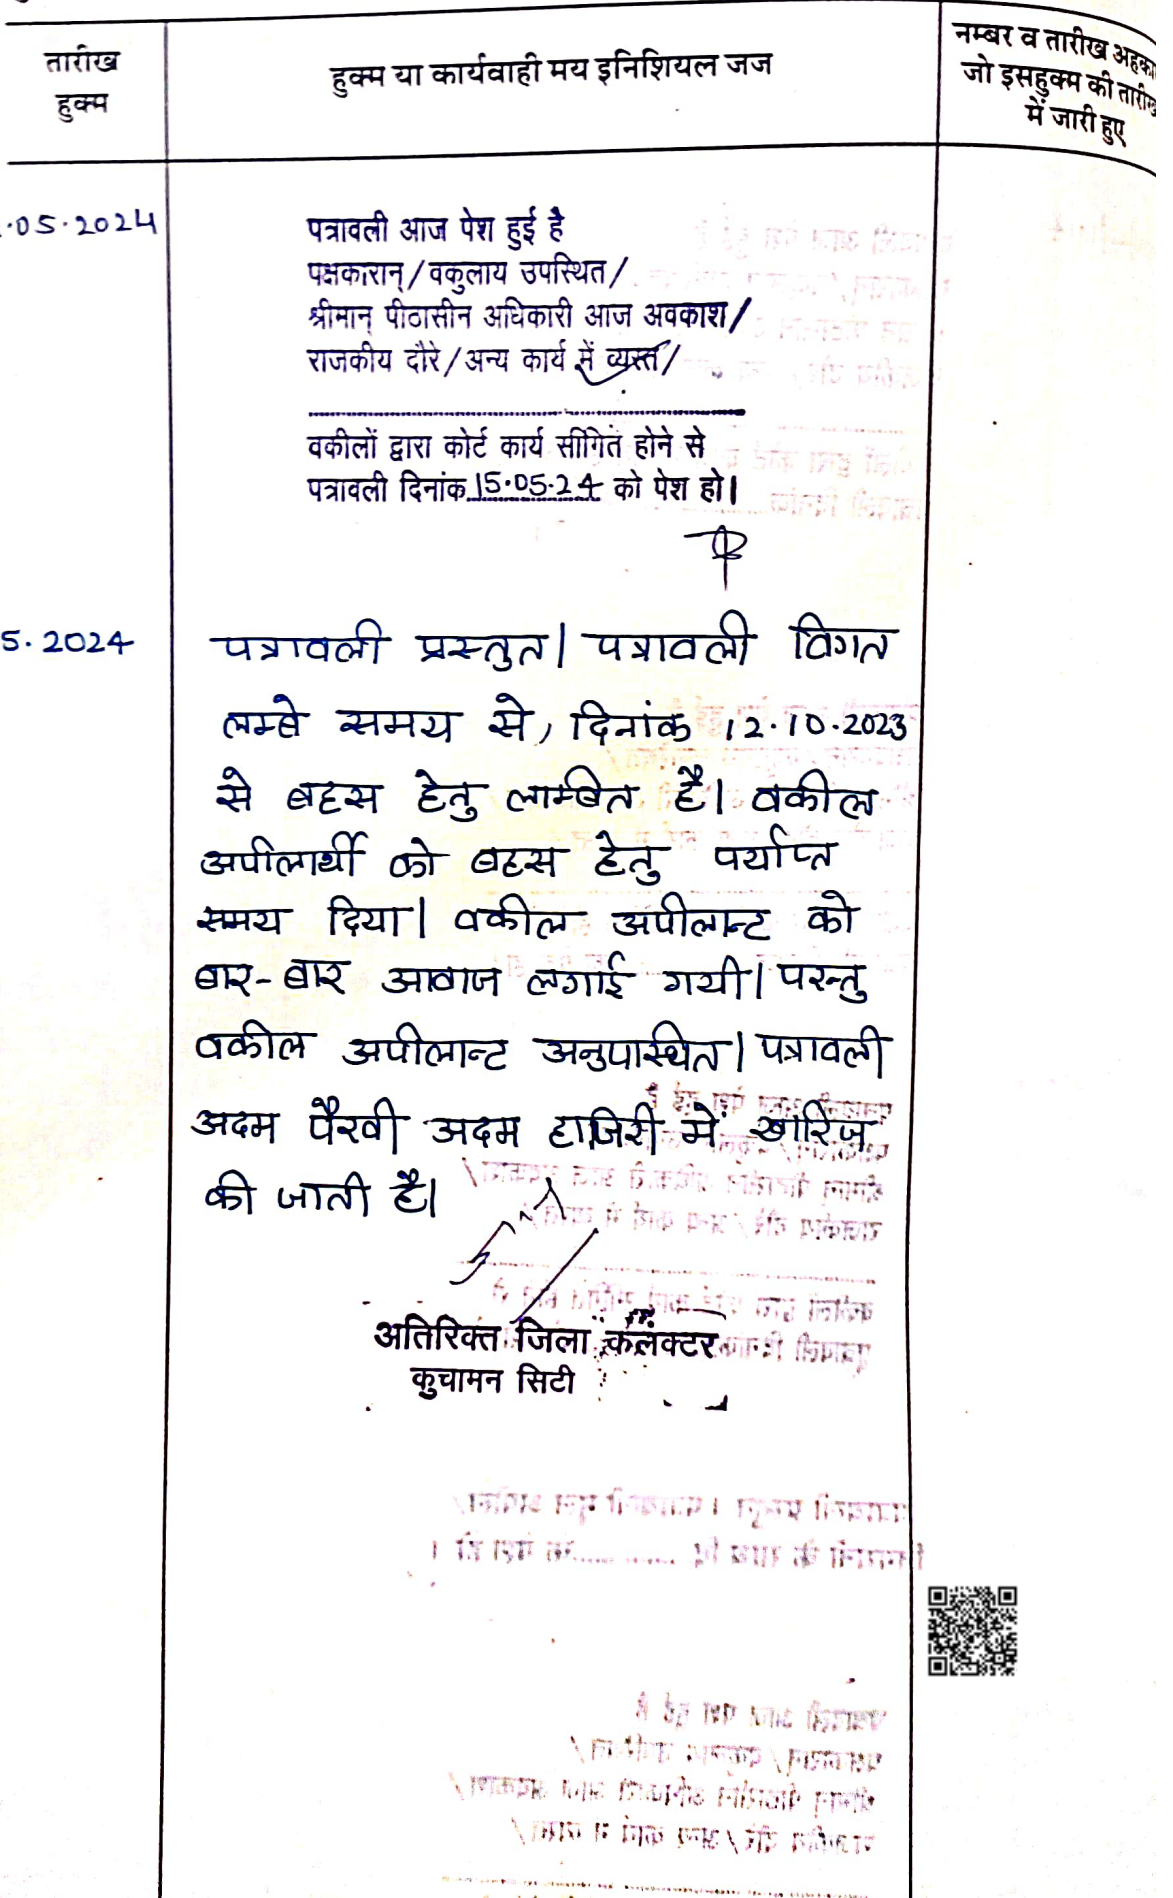 तारीख
हुक्म
हुक्म या कार्यवाही मय इनिशियल जज
नम्बर व तारीख अहका
जो इसहुक्म की तारीख
में जारी हुए
.05.2024
पत्रावली आज पेश हुई है
पक्षकारान्/वकुलाय उपस्थित/
श्रीमान् पीठासीन अधिकारी आज अवकाश/
राजकीय दौरे/अन्य कार्य में व्यस्त/
वकीलों द्वारा कोर्ट कार्य सीगित होने से
पत्रावली दिनांक 15.05.24 को पेश हो।
5.2024
पत्रावली प्रस्तुत। पत्रावली विगत
लम्बे समय से, दिनांक 12.10.2023
से बहस हेतु लाम्बित है। वकील
अपीलार्थी को बहस हेतु पर्याप्त
समय दिया। वकील अपीलान्ट को
बार-बार आवाज लगाई गयी। परन्तु
वकील अपीलान्ट अनुपास्थित। पत्रावली
अदम पैरवी अदम हाजिरी में खारिज
की जाती है।
अतिरिक्त जिला कलक्टर
कुचामन सिटी